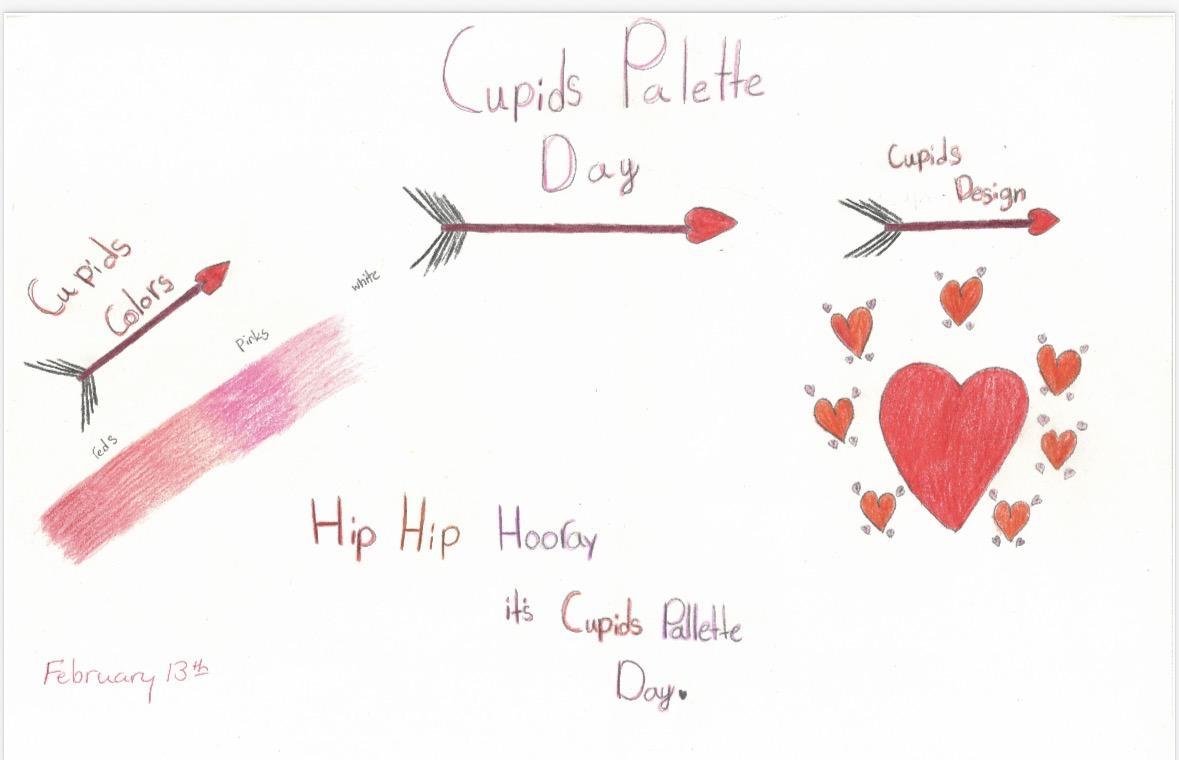 Cupids Palette
Day
Cupids
Design
Cupids
Colors
white
Pinks
reds
Hip Hip Hooray
it's Cupids Pallette
Day.
February 13th